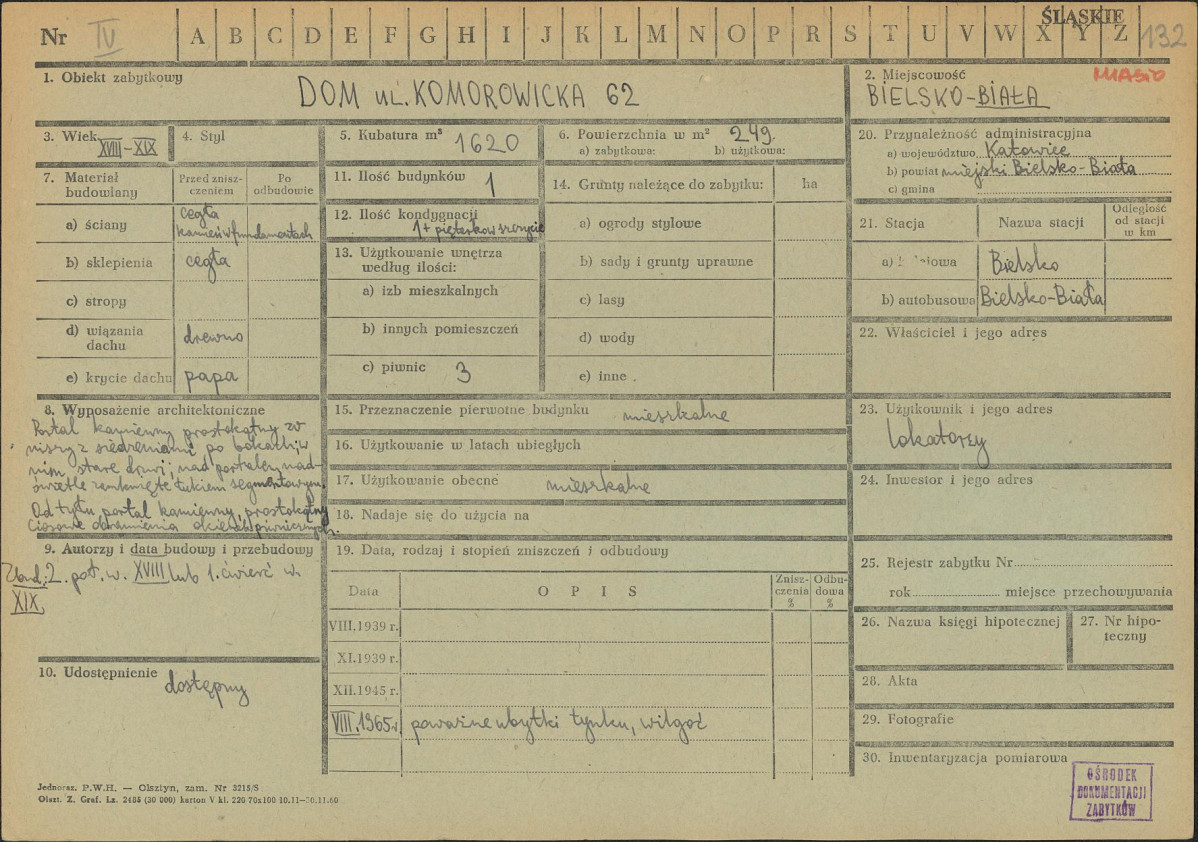 ŚLĄSKIE
Nr IV A B C D E F G H I J K L M N O P R S T U V W X Y Z 132
1. Obiekt zabytkowy
DOM ul. KOMOROWICKA 62
2. Miejscowość MIASTO
BIELSKO-BIAŁA
3. Wiek XVIII-XIX
4. Styl
5. Kubatura m³ 1620
6. Powierzchnia w m² 249.
a) zabytkowa: b) użytkowa:
20. Przynależność administracyjna
a) województwo Katowice
b) powiat miejski Bielsko-Biała
c) gmina
7. Materiał budowlany
Przed zniszczeniem
Po odbudowie
a) ściany cegła
kamień w fundamentach
b) sklepienia cegła
c) stropy
d) wiązania dachu drewno
e) krycie dachu papa
11. Ilość budynków 1
12. Ilość kondygnacji
1 + pięterko w szczycie
13. Użytkowanie wnętrza
według ilości:
a) izb mieszkalnych
b) innych pomieszczeń
c) piwnic 3
14. Grunty należące do zabytku: ha
a) ogrody stylowe
b) sady i grunty uprawne
c) lasy
d) wody
e) inne
21. Stacja
Nazwa stacji
Odległość
od stacji
w km
a) Bielsko
b) autobusowa Bielsko-Biała
22. Właściciel i jego adres
8. Wyposażenie architektoniczne
Portal kamienny prostokątny w
niszy z siedzeniami po bokach, w
nim stare drzwi; nad portalem nad-
świetle zamknięte łukiem segmentowym.
Od tyłu portal kamienny, prostokątny
Ciosowe obramienia okienek piwnicznych.
15. Przeznaczenie pierwotne budynku mieszkalne
16. Użytkowanie w latach ubiegłych
17. Użytkowanie obecne mieszkalne
18. Nadaje się do użycia na
23. Użytkownik i jego adres
lokatorzy
24. Inwestor i jego adres
9. Autorzy i data budowy i przebudowy
Zbud.: 2. poł. w. XVIII lub 1. ćwierć w.
XIX
10. Udostępnienie dostępny
19. Data, rodzaj i stopień zniszczeń i odbudowy
Data
O P I S
Znisz-
czenia
%
Odbu-
dowa
%
VIII.1939 r.
XI.1939 r.
XII.1945 r.
VIII.1965 r. poważne ubytki tynku, wilgoć
25. Rejestr zabytku Nr
rok miejsce przechowywania
26. Nazwa księgi hipotecznej
27. Nr hipo-
teczny
28. Akta
29. Fotografie
30. Inwentaryzacja pomiarowa
OŚRODEK
DOKUMENTACJI
ZABYTKÓW
Jednoraz. P.W.H. — Olsztyn, zam. Nr 3215/S
Olszt. Z. Graf. Lz. 2485 (30 000) karton V kl. 220 70x100 10.11-30.11.60